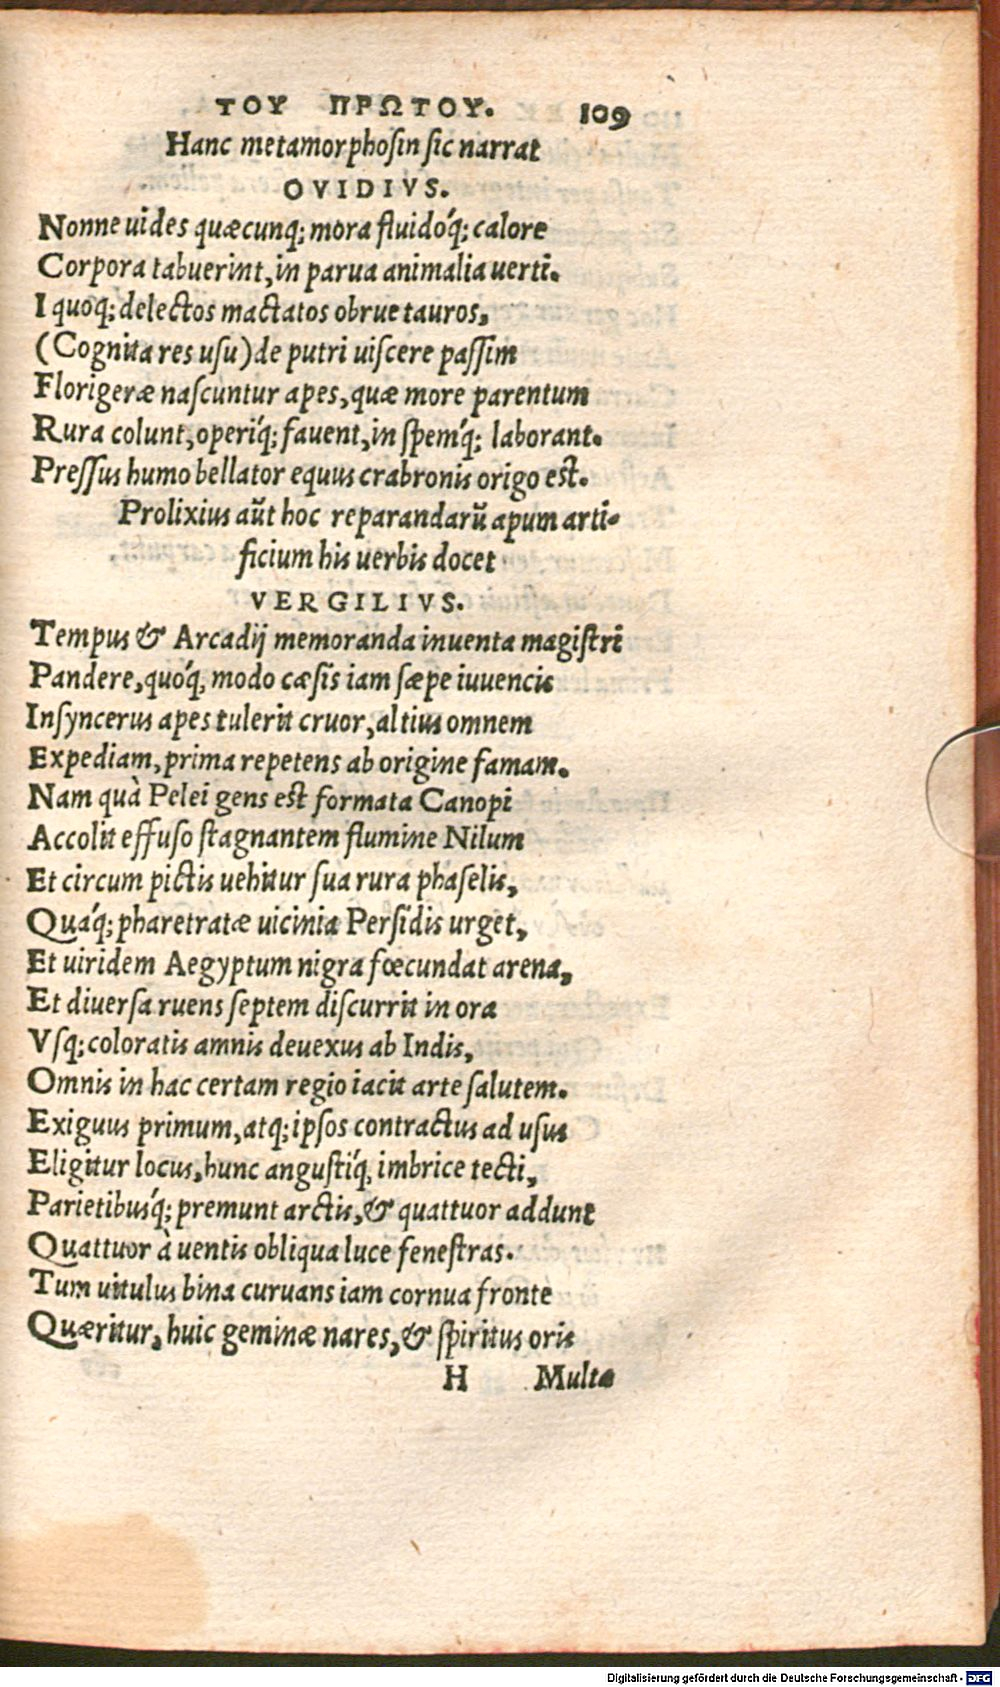 ΤΟΥ ΠΡΩΤΟΥ. 109
Hanc metamorphosin sic narrat
OVIDIVS.
Nonne uides quæcunq; mora fluidóq; calore
Corpora tabuerint, in parua animalia uerti.
I quoq; delectos mactatos obrue tauros,
(Cognita res usu) de putri uiscere passim
Florigeræ nascuntur apes, quæ more parentum
Rura colunt, operíq; fauent, in spemq́; laborant.
Pressus humo bellator equus crabronis origo est.
Prolixius aūt hoc reparandarū apum arti-
ficium his uerbis docet
VERGILIVS.
Tempus & Arcadij memoranda inuenta magistri
Pandere, quóq, modo cæsis iam sæpe iuuencis
Insyncerus apes tulerit cruor, altius omnem
Expediam, prima repetens ab origine famam.
Nam quà Pelei gens est formata Canopi
Accolit effuso stagnantem flumine Nilum
Et circum pictis uehitur sua rura phaselis,
Quáq; pharetratæ uicinia Persidis urget,
Et uiridem Aegyptum nigra fœcundat arena,
Et diuersa ruens septem discurrit in ora
Vsq; coloratis amnis deuexus ab Indis,
Omnis in hac certam regio iacit arte salutem.
Exiguus primum, atq; ipsos contractus ad usus
Eligitur locus, hunc angustíq, imbrice tecti,
Parietibusq́; premunt arctis, & quattuor addunt
Quattuor à uentis obliqua luce fenestras.
Tum uitulus bina curuans iam cornua fronte
Quæritur, huic geminæ nares, & spiritus oris
H Multa
Digitalisierung gefördert durch die Deutsche Forschungsgemeinschaft - DFG